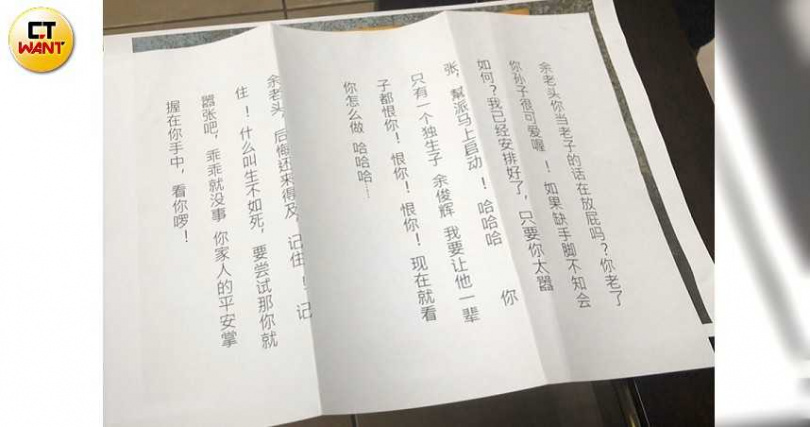 CT
WANT
余老头你当老子的话在放屁吗?你老了
你孙子很可爱喔 !如果缺手脚不知会
如何?我已经安排好了,只要你太嚣
张,幫派马上启动 !哈哈哈 你
只有一个独生子 余俊辉 我要让他一辈
子都恨你!恨你!恨你!现在就看
你怎么做 哈哈哈……
余老头,后悔还来得及,记住 !记
住 !什么叫生不如死,要尝试那你就
嚣张吧,乖乖就没事 你家人的平安掌
握在你手中,看你啰!